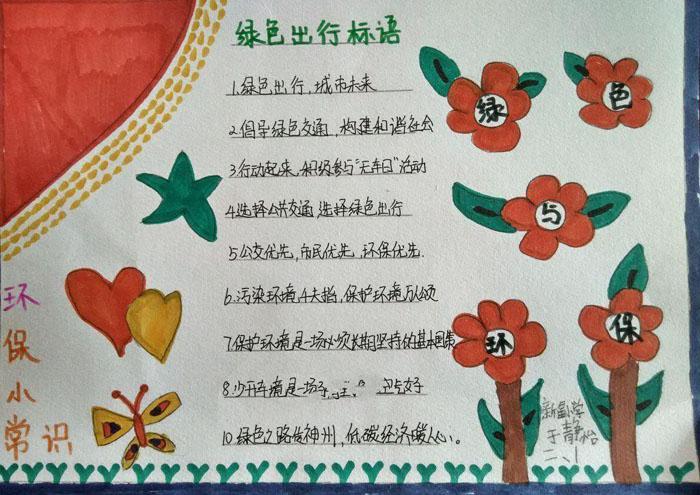 绿色出行标语
1.绿色出行,城市未来
2.倡导绿色交通,构建和谐社会
3.行动起来,积极参与"无车日"活动
4.选择公共交通 选择绿色出行
5.公交优先,市民优先,环保优先.
6.污染环境千夫指,保护环境万人颂
7.保护环境是一场必须长期坚持的基本国策
8.少开车
10.绿色之路传神州,低碳经济暖人心。
绿
色
与
环
保
环
保
小
常识
于静怡
二、1